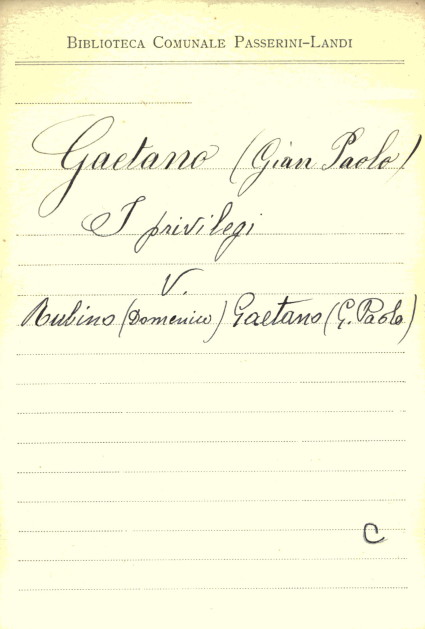 BIBLIOTECA COMUNALE PASSERINI-LANDI
Gaetano (Gian Paolo)
I privilegi
V.
Rubino (Domenico) Gaetano (G. Paolo)
C